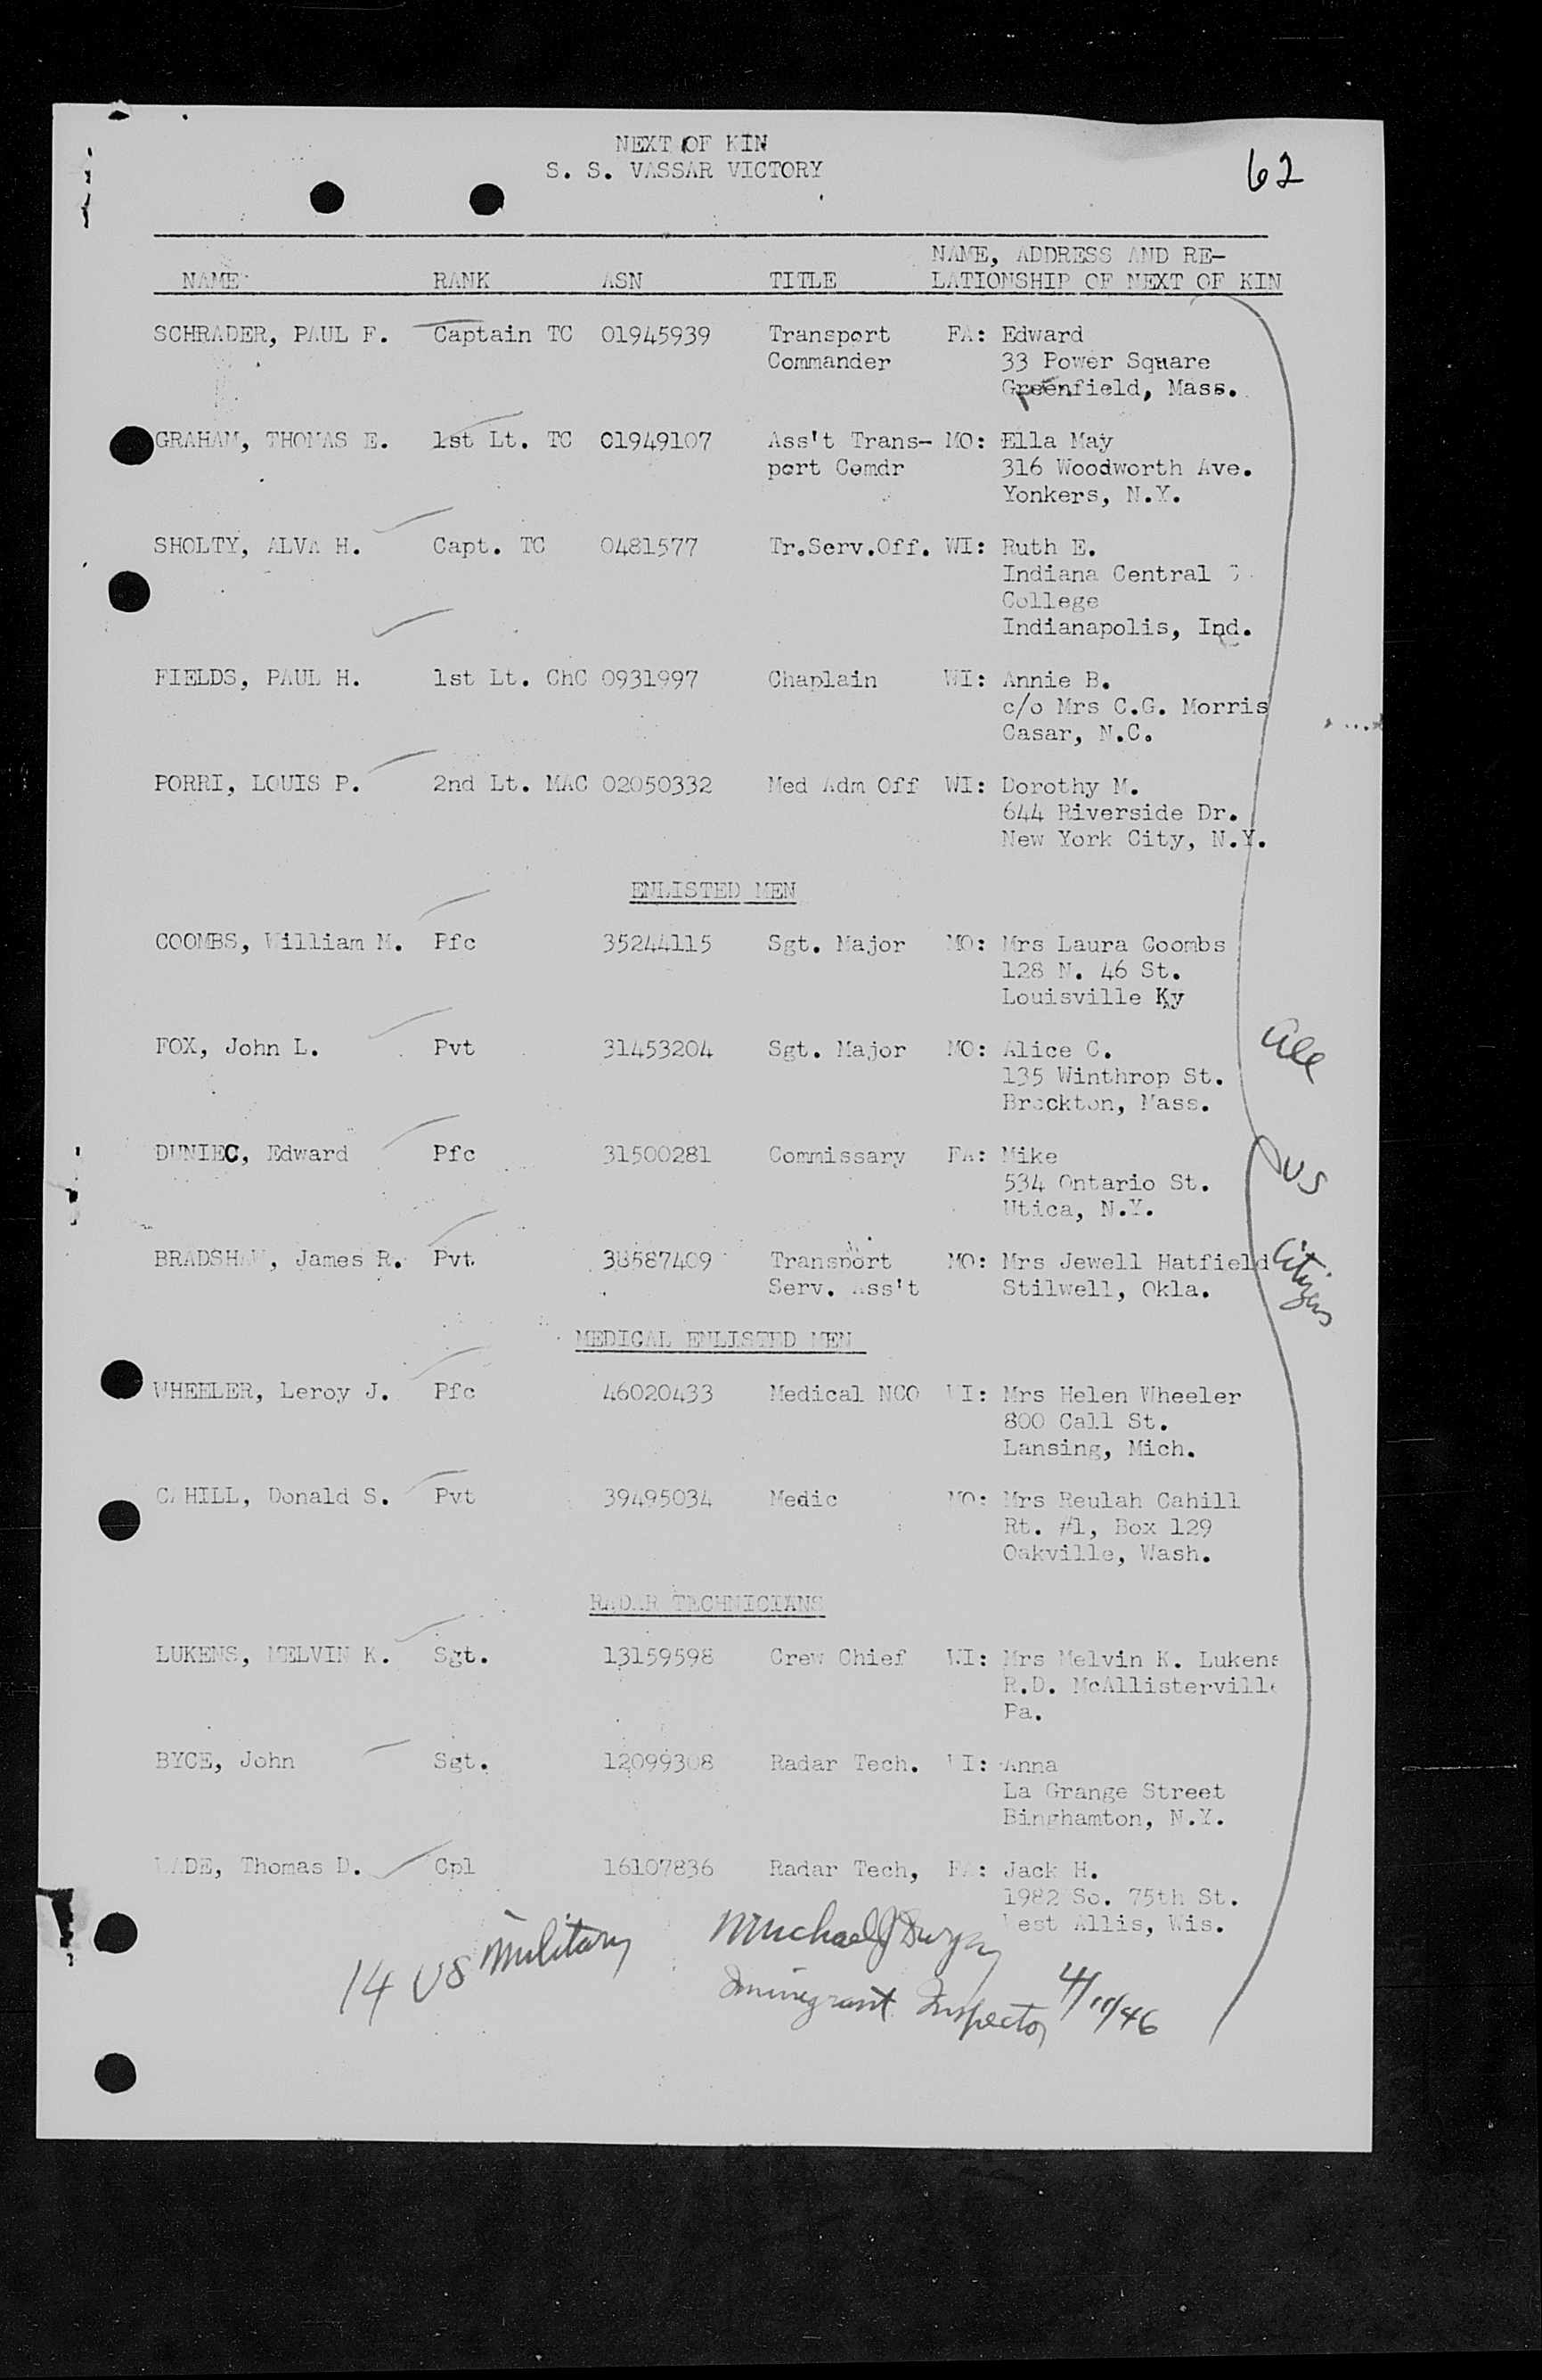 NEXT OF KIN
S. S. VASSAR VICTORY
62
NAME RANK ASN TITLE NAME, ADDRESS AND RE-
LATIONSHIP OF NEXT OF KIN
SCHRADER, PAUL F. Captain TC 01945939 Transport FA: Edward
Commander 33 Power Square
Greenfield, Mass.
GRAHAM, THOMAS E. 1st Lt. TC 01949107 Ass't Trans- MO: Ella May
port Comdr 316 Woodworth Ave.
Yonkers, N.Y.
SHOLTY, ALVA H. Capt. TC 0481577 Tr.Serv.Off. WI: Ruth E.
Indiana Central
College
Indianapolis, Ind.
FIELDS, PAUL H. 1st Lt. ChC 0931997 Chaplain WI: Annie B.
c/o Mrs C.G. Morris
Casar, N.C.
PORRI, LOUIS P. 2nd Lt. MAC 02050332 Med Adm Off WI: Dorothy M.
644 Riverside Dr.
New York City, N.Y.
ENLISTED MEN
COOMBS, William M. Pfc 35244115 Sgt. Major MO: Mrs Laura Coombs
128 N. 46 St.
Louisville Ky
FOX, John L. Pvt 31453204 Sgt. Major MO: Alice C.
135 Winthrop St.
Brockton, Mass.
DUNIEC, Edward Pfc 31500281 Commissary FA: Mike
534 Ontario St.
Utica, N.Y.
BRADSHAW, James R. Pvt 38587409 Transport MO: Mrs Jewell Hatfield
Serv. Ass't Stilwell, Okla.
all
US
Citizens
MEDICAL ENLISTED MEN
WHEELER, Leroy J. Pfc 46020433 Medical NCO WI: Mrs Helen Wheeler
800 Call St.
Lansing, Mich.
CAHILL, Donald S. Pvt 39495034 Medic MO: Mrs Beulah Cahill
Rt. #1, Box 129
Oakville, Wash.
RADAR TECHNICIANS
LUKENS, MELVIN K. Sgt. 13159598 Crew Chief WI: Mrs Melvin K. Lukens
R.D. McAllisterville
Pa.
BYCE, John Sgt. 12099308 Radar Tech. WI: Anna
La Grange Street
Binghamton, N.Y.
WADE, Thomas D. Cpl 16107836 Radar Tech, FA: Jack H.
1982 So. 75th St.
West Allis, Wis.
14 US Military Michael J
Immigrant Inspector 4/11/46